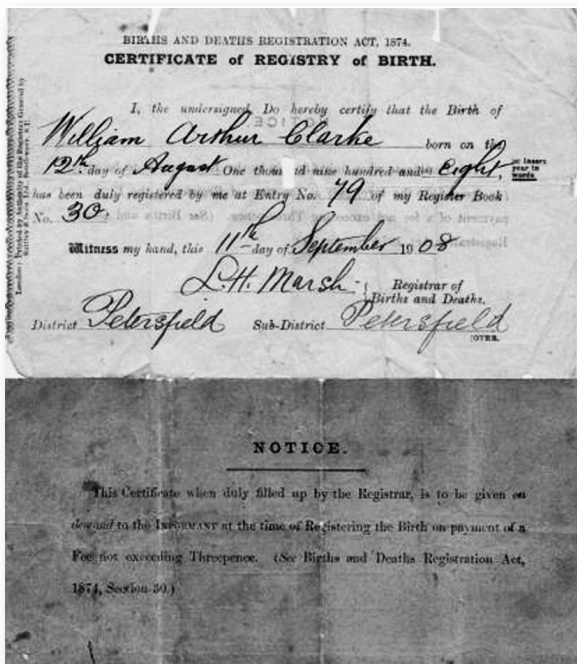 BIRTHS AND DEATHS REGISTRATION ACT, 1874.
CERTIFICATE of REGISTRY of BIRTH.
I, the undersigned, Do hereby certify that the Birth of
William Arthur Clarke born on the
12th day of August One thousand nine hundred and eight,
* Insert
year in
words.
has been duly registered by me at Entry No. 79 of my Register Book
No. 30
Witness my hand, this 11th day of September 1908
L.H. Marsh { Registrar of
Births and Deaths.
District Petersfield Sub-District Petersfield
[OVER.
NOTICE.
This Certificate when duly filled up by the Registrar, is to be given on
demand to the INFORMANT at the time of Registering the Birth on payment of a
Fee not exceeding Threepence. (See Births and Deaths Registration Act,
1874, Section 30.)